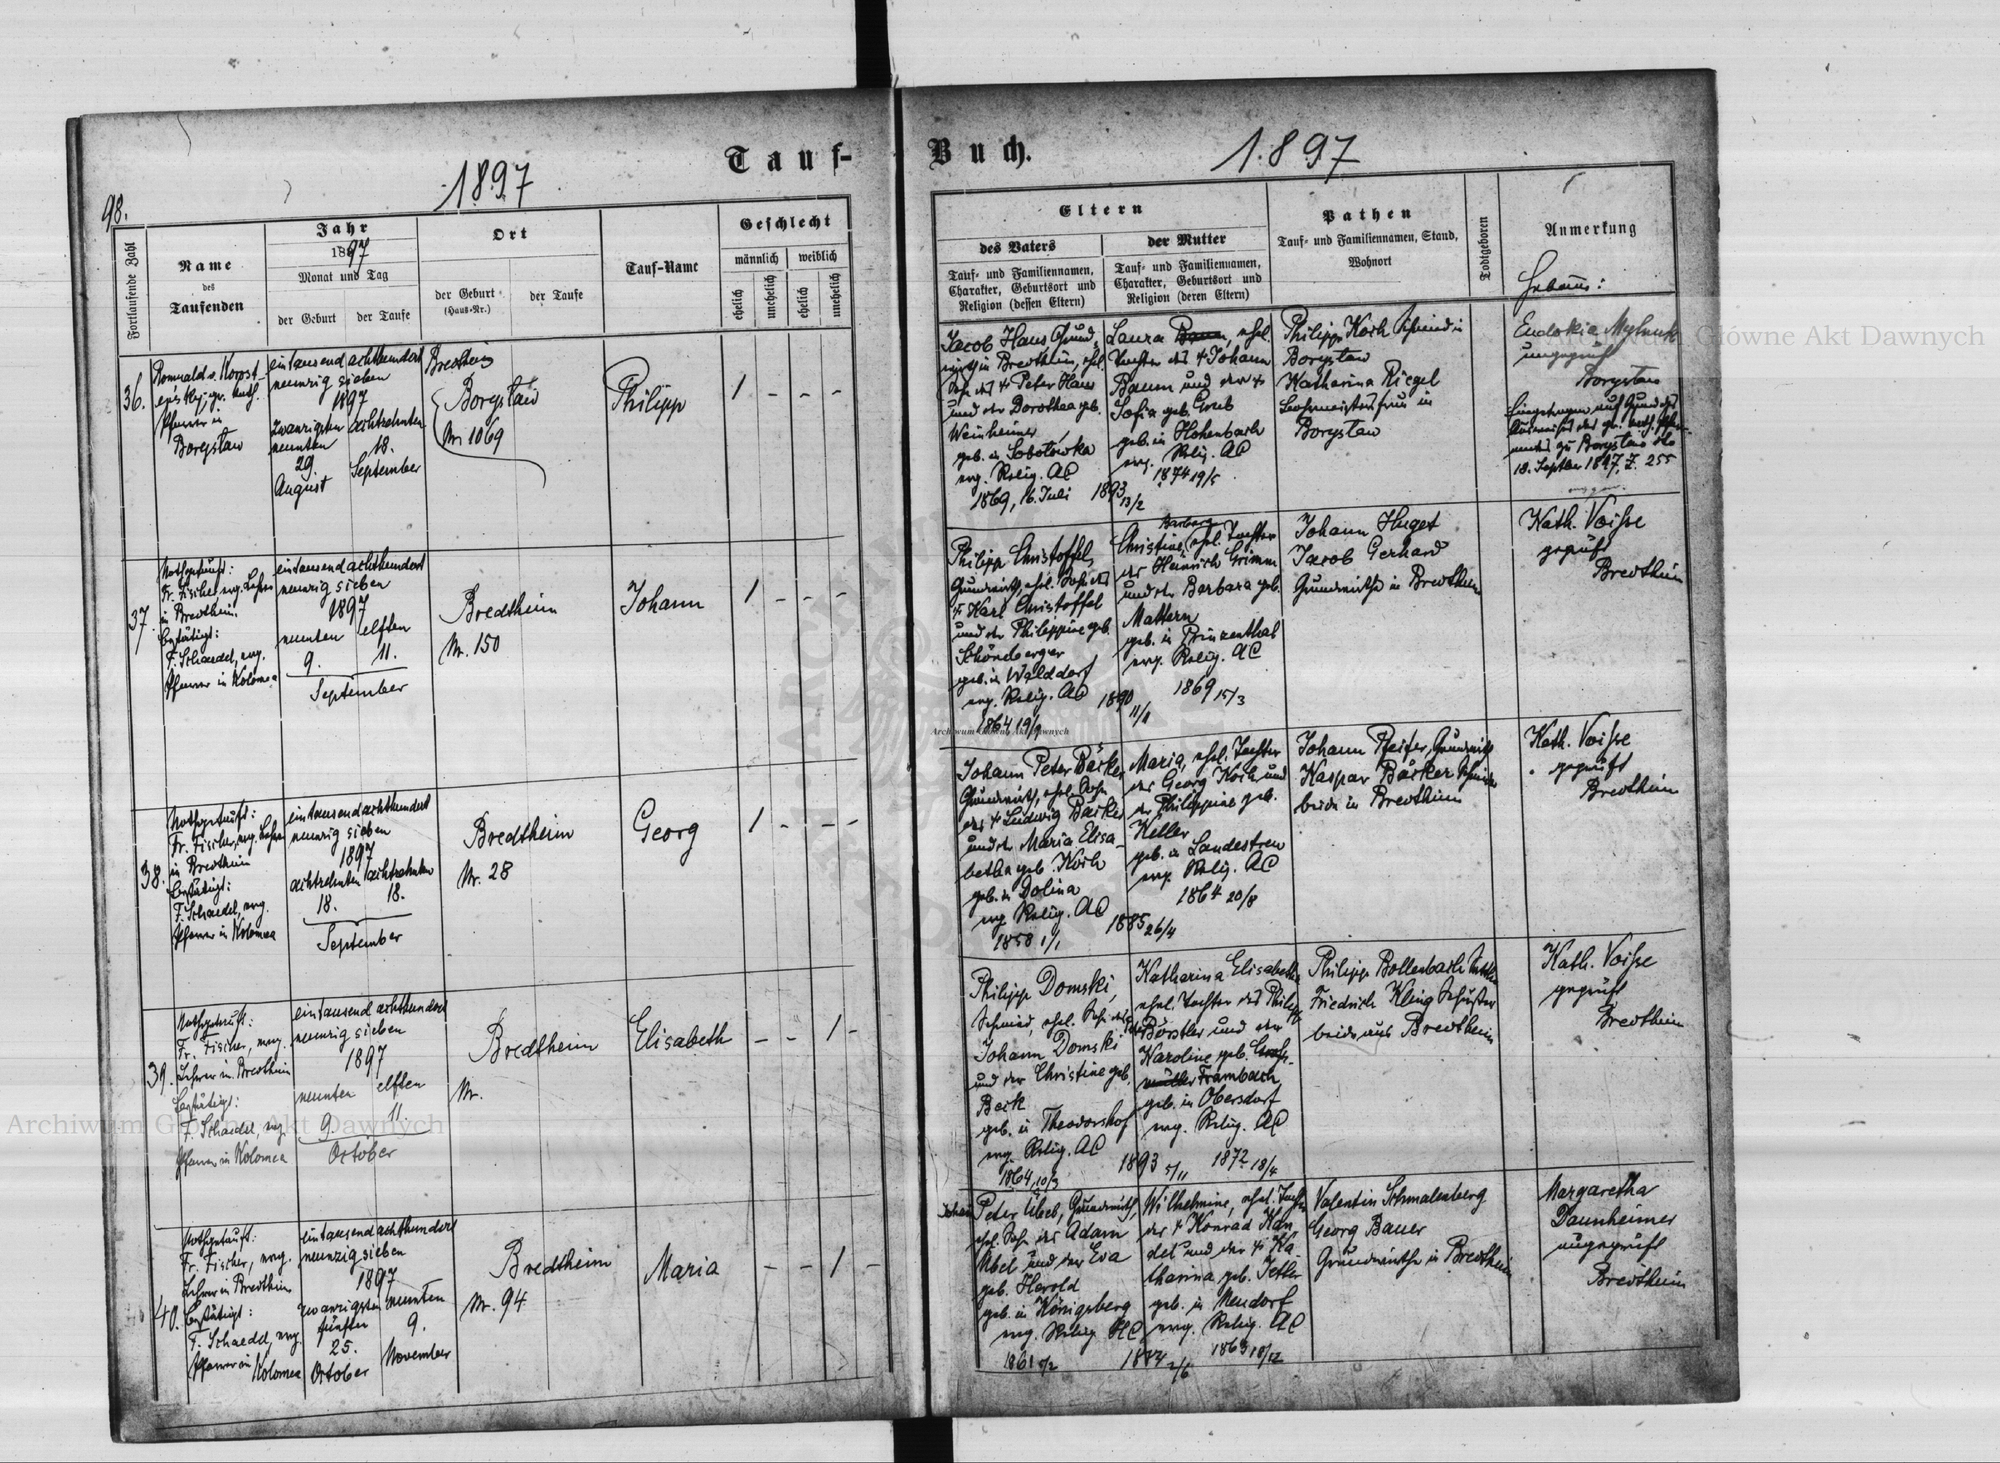 Tauf-
Buch.
1897
1.897
98.
Fortlaufende Zahl
Name
des
Taufenden
Jahr
1897
Monat und Tag
der Geburt
der Taufe
Ort
der Geburt
(Haus-Nr.)
der Taufe
Tauf-Name
Geschlecht
männlich
weiblich
ehelich
unehelich
ehelich
unehelich
Eltern
des Vaters
Tauf- und Familiennamen,
Charakter, Geburtsort und
Religion (dessen Eltern)
der Mutter
Tauf- und Familiennamen,
Charakter, Geburtsort und
Religion (deren Eltern)
Pathen
Tauf- und Familiennamen, Stand,
Wohnort
Todtgeboren
Anmerkung
Hebamme:
36.
Romuald v.
gr. kath.
Pfarrer in
Borysław
eintausend achthundert
neunzig sieben
1897
zwanzigsten achtzehnten
neunten
29. 18.
August September
Bredtheim
Borysław
Nr. 1069
Philipp
1 - - -
Jacob Haus Grund-
wirth in Bredtheim, ehel.
Sohn des † Peter Haus
und der Dorothea geb.
Weinheimer
geb. in Sobotowka
evg. Relig. AC
1869, 16. Juli
1893 13/2
Laura Baum, ehel.
Tochter des † Johann
Baum und der †
Sofia geb. Grub
geb. in Hohenbach
evg. Relig. AC
1874 19/5
Philipp Koch Schmied in
Borysław
Katharina Riegel
Bohrmeistersfrau in
Borysław
Eudokia
ungeprüft
Borysław
Eingetragen auf Grund des
Ausweises des gr. kath. Pfarr-
amtes zu Borysław dto
18. September 1897, Z. 255
37.
Nothgetauft:
Fr. Fischer evg. Lehrer
in Bredtheim.
Bestätigt:
F. Schaedel, evg.
Pfarrer in Kolomea
eintausend achthundert
neunzig sieben
1897
neunten elften
9. 11.
September
Bredtheim
Nr. 150
Johann
1 - - -
Philipp Christoffel,
Grundwirth, ehel. Sohn des
† Karl Christoffel
und der Philippine geb.
Schönberger
geb. in Walddorf
evg. Relig. AC
1864 19/9
1890 11/1
Barbara
Christine, ehel. Tochter
des Heinrich Grimm
und der Barbara geb.
Mattern
geb. in Prinzenthal
evg. Relig. AC
1869 15/3
Johann Huget
Jacob Gerhard
Grundwirthe in Bredtheim
Kath. Voisse
geprüft
Bredtheim
38.
Nothgetauft:
Fr. Fischer, evg. Lehrer
in Bredtheim
Bestätigt:
F. Schaedel, evg.
Pfarrer in Kolomea
eintausend achthundert
neunzig sieben
1897
achtzehnten achtzehnten
18. 18.
September
Bredtheim
Nr. 28
Georg
1 - - -
Johann Peter Bäcker
Grundwirth, ehel. Sohn
des † Ludwig Bäcker
und der Maria Elisa-
betha geb. Koch
geb. in Dolina
evg. Relig. AC
1858 1/1
1885 26/4
Maria, ehel. Tochter
des Georg Koch und
der Philippine geb.
Keller
geb. in Landestreu
evg. Relig. AC
1864 20/8
Johann Pfeifer, Grundwirth
Kaspar Bäcker Schmied
beide in Bredtheim
Kath. Voisse
geprüft
Bredtheim
39.
Nothgetauft:
Fr. Fischer, evg.
Lehrer in Bredtheim
Bestätigt:
F. Schaedel, evg.
Pfarrer in Kolomea
eintausend achthundert
neunzig sieben
1897
neunten elften
9. 11.
October
Bredtheim
Nr.
Elisabeth
- - 1 -
Philipp Domski,
Schmied, ehel. Sohn des
Johann Domski
und der Christine geb.
Beck
geb. in Theodorshof
evg. Relig. AC
1864, 10/3
1893 5/11
Katharina Elisabetha
ehel. Tochter des Philipp
Börstler und der
Karoline geb.
Frambach
geb. in Obersdorf
evg. Relig. AC
1872 18/4
Philipp Bollenbach
Friedrich Kling Schuster
beide aus Bredtheim
Kath. Voisse
geprüft
Bredtheim
40.
Nothgetauft:
Fr. Fischer, evg.
Lehrer in Bredtheim
Bestätigt:
F. Schaedel, evg.
Pfarrer in
Kolomea
eintausend achthundert
neunzig sieben
1897
zwanzigsten neunten
fünften 9.
25.
October November
Bredtheim
Nr. 94
Maria
- - 1 -
Johann
Peter Übel, Grundwirth,
ehel. Sohn des Adam
Übel und der Eva
geb. Harold
geb. in Königsberg
evg. Relig. HC
1861 5/2
1884 2/6
Wilhelmine, ehel. Tochter
des † Konrad Kan-
del und der † Ka-
tharina geb. Jetler
geb. in Neudorf
evg. Relig. AC
1863 18/12
Valentin Schmalenberg
Georg Bauer
Grundwirthe in Bredtheim
Margaretha
Daunheimer
ungeprüft
Bredtheim
Archiwum Główne Akt Dawnych
Archiwum Główne Akt Dawnych
Archiwum Główne Akt Dawnych